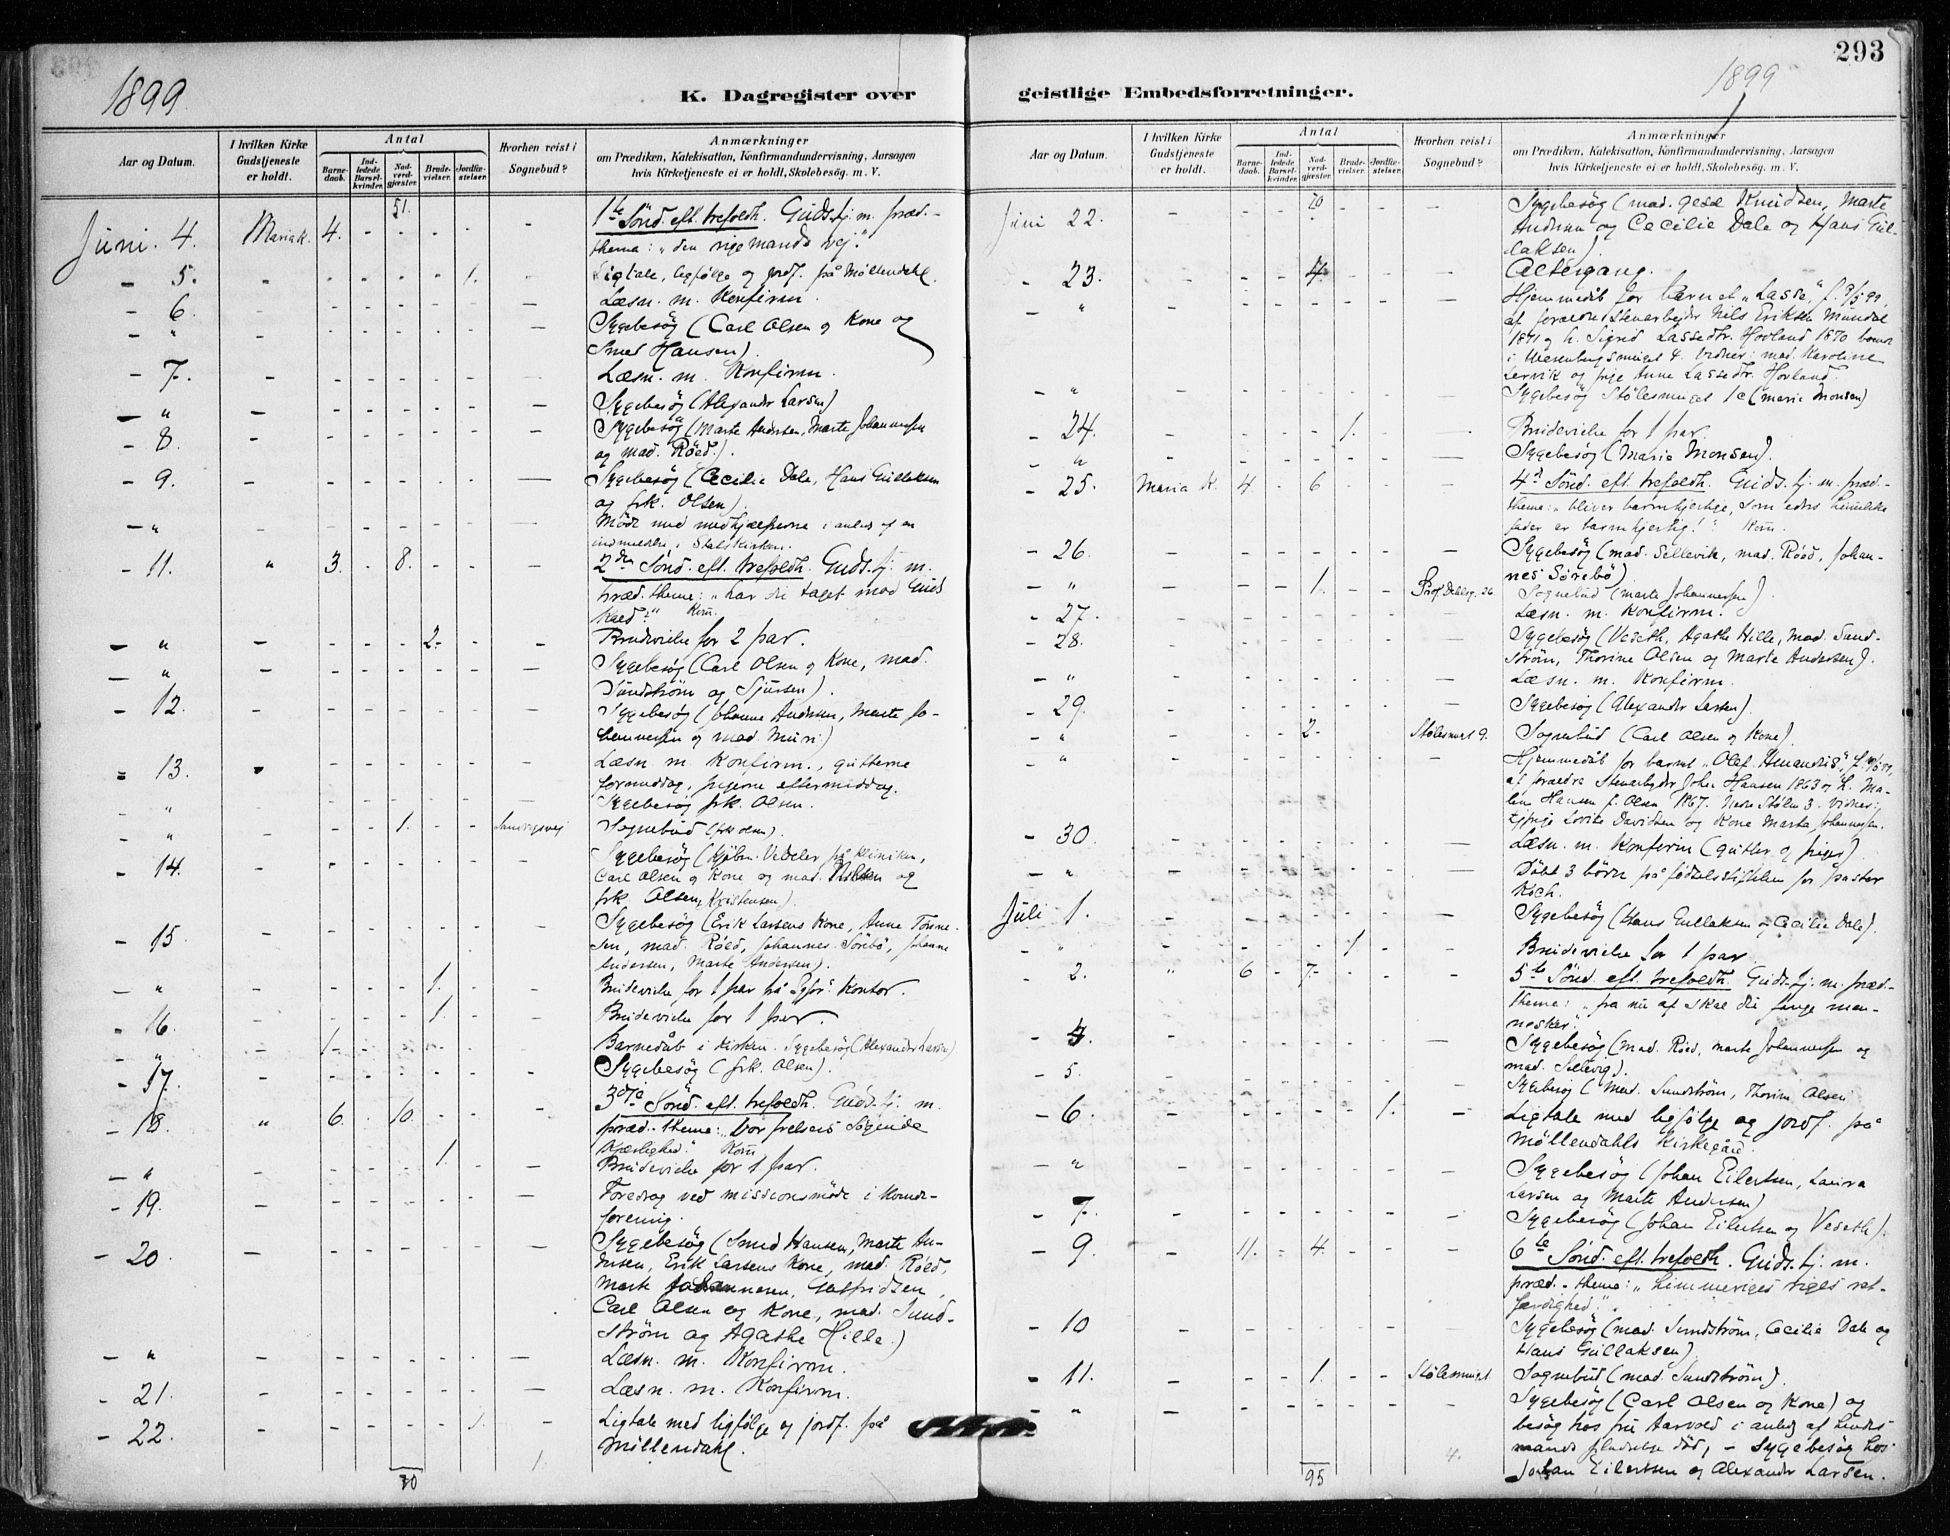 293
1899
1899
K. Dagregister over
geistlige Embedsforretninger.
Aar og Datum.
I hvilken Kirke Gudstjeneste er holdt.
Antal
Barnedaab.
Indledede Barselkvinder.
Nadverdgjæster.
Brudevielser.
Jordfæstelser.
Hvorhen reist i Sognebud?
Anmærkninger
om Prædiken, Katekisation, Konfirmandundervisning, Aarsagen
hvis Kirketjeneste ei er holdt, Skolebesøg. m. V.
51.
Juni. 4. Mariak. 4. - - - - - 1te Sönd. eft. trefoldh. Guds.tj. m. præd. -
thema: "den rige mands vej."
- 5. - - - - - 1. - Ligtale, ligfølge og jordf. på Møllendahl.
- 6. - - - - - - - Læsn. m. Konfirm.
- " - - - - - - - Sygebesög (Carl Olsen og Kone og
Smed Hansen).
- 7. - - - - - - - Læsn. m. Konfirm.
- " - - - - - - - Sygebesög (Alexander Larsen)
- 8. - - - - - - - Sygebesög (Marte Andersen, Marte Johannessen
og mad. Röed.).
- 9. - - - - - - - Sygebesög (Cecilie Dale, Hans Gullaksen
og frk. Olsen).
- " - - - - - - - Möde med medhjælperne i anledn. af en
indmeldn. i Statskirken.
- 11. " 3. - 8. - - - 2den Sönd. eft. trefoldh. Guds.tj. m.
præd. thema: "har du taget mod Guds
Kald?" Kom.
- " - - - - 2- - - Brudevielse for 2 par.
- " - - - - - - - Sygebesög (Carl Olsen og Kone, mad.
Sundström og Sjursen).
- 12. - - - - - - - Sygebesög (Johanne Andersen, Marte Jo-
hannessen og mad. Muri)
- 13. - - - - - - - Læsn m. Konfirm., gutterne
formiddag, pigerne eftermiddag.
" - - - - - - - Sygebesög frk. Olsen.
" - - - 1. - - Sandvigsvej Sognebud (frk Olsen).
- 14. - - - - - - - Sygebesög (Kjöbm. Vedeler på kliniken,
Carl Olsen og Kone og mad. og
frk. Olsen, Kristensen).
- 15. - - - - - - - Sygebesög (Erik Larsens Kone, Anne Tönne-
sen, mad. Röed, Johannes Sörebö, Johanne
Andersen, Marte Andersen).
- " - - - - 1. - - Brudevielse for 1 par på Kontor.
- 16. - - - - 1. - - Brudevielse for 1 par.
" - 1- - - - - - Barnedåb i kirken. Sygebesög (Alexander Larsen)
- 17. - - - - - - - Sygebesög (frk. Olsen).
- 18. " 6. - 10. - - - 3die Sönd. eft. trefoldh. Guds.tj. m.
præd.- thema: "Vor frelsers sögende
Kjærlighed." Kom
- " - - - - 1. - - Brudevielse for 1 par.
- 19. - - - - - - - Foredrag ved missionsmöde i Kvinde-
forening.
- 20. - - - - - - - Sygebesög (Smed Hansen, Marte An-
dersen, Erik Larsens Kone, mad. Röed,
Marte Johannesen, Gutfridsen,
Carl Olsen og Kone, mad. Sund-
ström og Agathe Hille.)
- " - - - - - - - Læsn. m. Konfirm.
- 21. - - - - - - - Læsn. m. Konfirm.
- 22. - - - - - 1. - Ligtale med ligfölge og jordf. på
Möllendahl.
70
1.
Aar og Datum.
I hvilken Kirke Gudstjeneste er holdt.
Antal
Barnedaab.
Indledede Barselkvinder.
Nadverdgjæster.
Brudevielser.
Jordfæstelser.
Hvorhen reist i Sognebud?
Anmærkninger
om Prædiken, Katekisation, Konfirmandundervisning, Aarsagen
hvis Kirketjeneste ei er holdt, Skolebesøg. m. V.
70
Juni 22. - - - - - - Sygebesög (mad. Gesæ Knudsen, Marte
Andersen og Cecilie Dale og Hans Gul-
laksen).
- 23. - - - 4. - - - Altergang.
- " - - - - - - - Hjemmedåb for barnet "Lasse," f. 9/5 99,
af forældre: Stenarbejder Nils Eriksen Mundal
1871 og h. Sigrid Lassedtr. Hovland 1870 boende
i Wesenbergsmuget 4. Vidner: mad. Karoline
Lervik og pige Anne Lassedtr. Hovland.
" - - - - - - - Sygebesög Stölesmuget 1c (Marie Monsen)
- 24. - - - - 1. - - Brudevielse for 1 par
" - - - - - - - Sygebesög (Marie Monsen).
- 25. Maria K. 4. - 6 - - - 4de Sönd. eft. trefoldh. Guds.tj. m. præd.-
thema: "bliver barmhjertige, som eders himmelske
fader er barmhjertig!" Kom.
- 26. - - - - - - - Sygebesög (mad. Sellevik, mad. Röed, Johan-
nes Sörebö).
- " - - - 1. - - Prof Dahlsg. 26 Sognebud (Marte Johannessen).
- 27. - - - - - - - Læsn. m. Konfirm.
- 28. - - - - - - - Sygebesög (Veseth, Agathe Hille, mad. Sund-
ström, Thorine Olsen og Marte Andersen).
- " - - - - - - - Læsn. m. Konfirm.
- 29. - - - - - - - Sygebesög (Alexander Larsen).
- " - - - 2- - - Stölesmuget 9. Sognebud (Carl Olsen og Kone).
- " - - - - - - - Hjemmedåb for barnet "Olef
af forældre Stenarbejder Joh. Hansen 1863 og h. Ma-
lene Hansen f. Olsen 1867. Nedre Stölen 3. Vidner:
pige Lovise Davidsen og Kone Marta Johannessen.
- 30. - - - - - - - Læsn. m. Konfirm (gutter og piger).
- " - - - - - - - Döbt 3 börn på födselsstiftelsen for pastor
Koch.
Juli 1. - - - - - - - Sygebesög (Hans Gullaksen og Cecilie Dale).
- " - - - - 1 - - Brudevielse for 1 par.
- 2. " 6 - 7- - - - 5te Sönd. eft. trefoldh. Guds.tj. m. præd.-
thema: "fra nu af skal du fange men-
nesker."
- 4. - - - - - - - Sygebesög (mad. Röed, Marte Johannessen og
mad. Sellevig).
- 5. - - - - - - - Sygebesög (Mad. Sundström, Thorine Olsen
- 6. - - - - - 1. - Ligtale med ligfölge og jordf. på
Möllendahls Kirkegård.
- " - - - - - - - Sygebesög (Johan Eilertsen, Laura
Larsen og Marte Andersen)
- 7. - - - - - - - Sygebesög (Johan Eilertsen og Veseth).
- 9 - 11. - 4. - - - 6te Sönd. eft. trefoldh. Guds.tj. m.
præd.- thema: "himmeriges riges ret-
færdighed".
- 10 - - - - - - - Sygebesög (mad. Sundström, Cecilie Dale og
Hans Gullaksen)
- 11. - - - 1. - - Stölesmuget Sognebud (mad. Sundström).
- " - - - - - - - Sygebesög (Carl Olsen og Kone) og
besög hos fru Aarvold i anledn. af hendes
mands pludselige död, - Sygebesög hos
Johan Eilertsen og Alexander Larsen.
95
4.